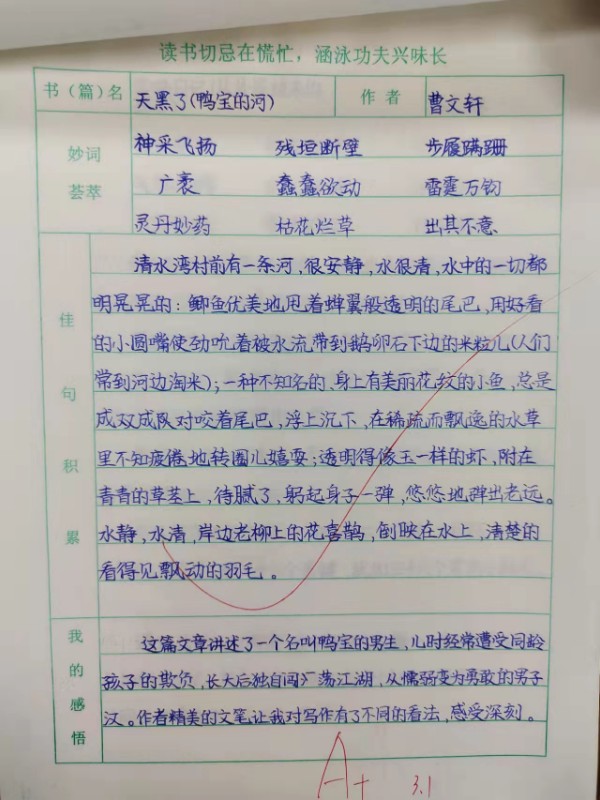 读书切忌在慌忙，涵泳功夫兴味长
书（篇）名 天黑了(鸭宝的河) 作者 曹文轩
妙词荟萃
神采飞扬 残垣断壁 步履蹒跚
广袤 蠢蠢欲动 雷霆万钧
灵丹妙药 枯花烂草 出其不意
佳句积累
清水湾村前有一条河，很安静，水很清，水中的一切都
明晃晃的：鲫鱼优美地甩着蝉翼般透明的尾巴，用好看
的小圆嘴使劲吮着被水流带到鹅卵石下边的米粒儿(人们
常到河边淘米)；一种不知名的、身上有美丽花纹的小鱼，总是
成双成队对咬着尾巴，浮上沉下，在稀疏而飘逸的水草
里不知疲倦地转圈儿嬉耍；透明得像玉一样的虾，附在
青青的草茎上，待腻了，躬起身子一弹，悠悠地弹出老远。
水静，水清，岸边老柳上的花喜鹊，倒映在水上，清楚的
看得见飘动的羽毛。
我的感悟
这篇文章讲述了一个名叫鸭宝的男生，儿时经常遭受同龄
孩子的欺负，长大后独自闯荡江湖，从懦弱变为勇敢的男子
汉。作者精美的文笔让我对写作有了不同的看法，感受深刻。
A+ 3.1